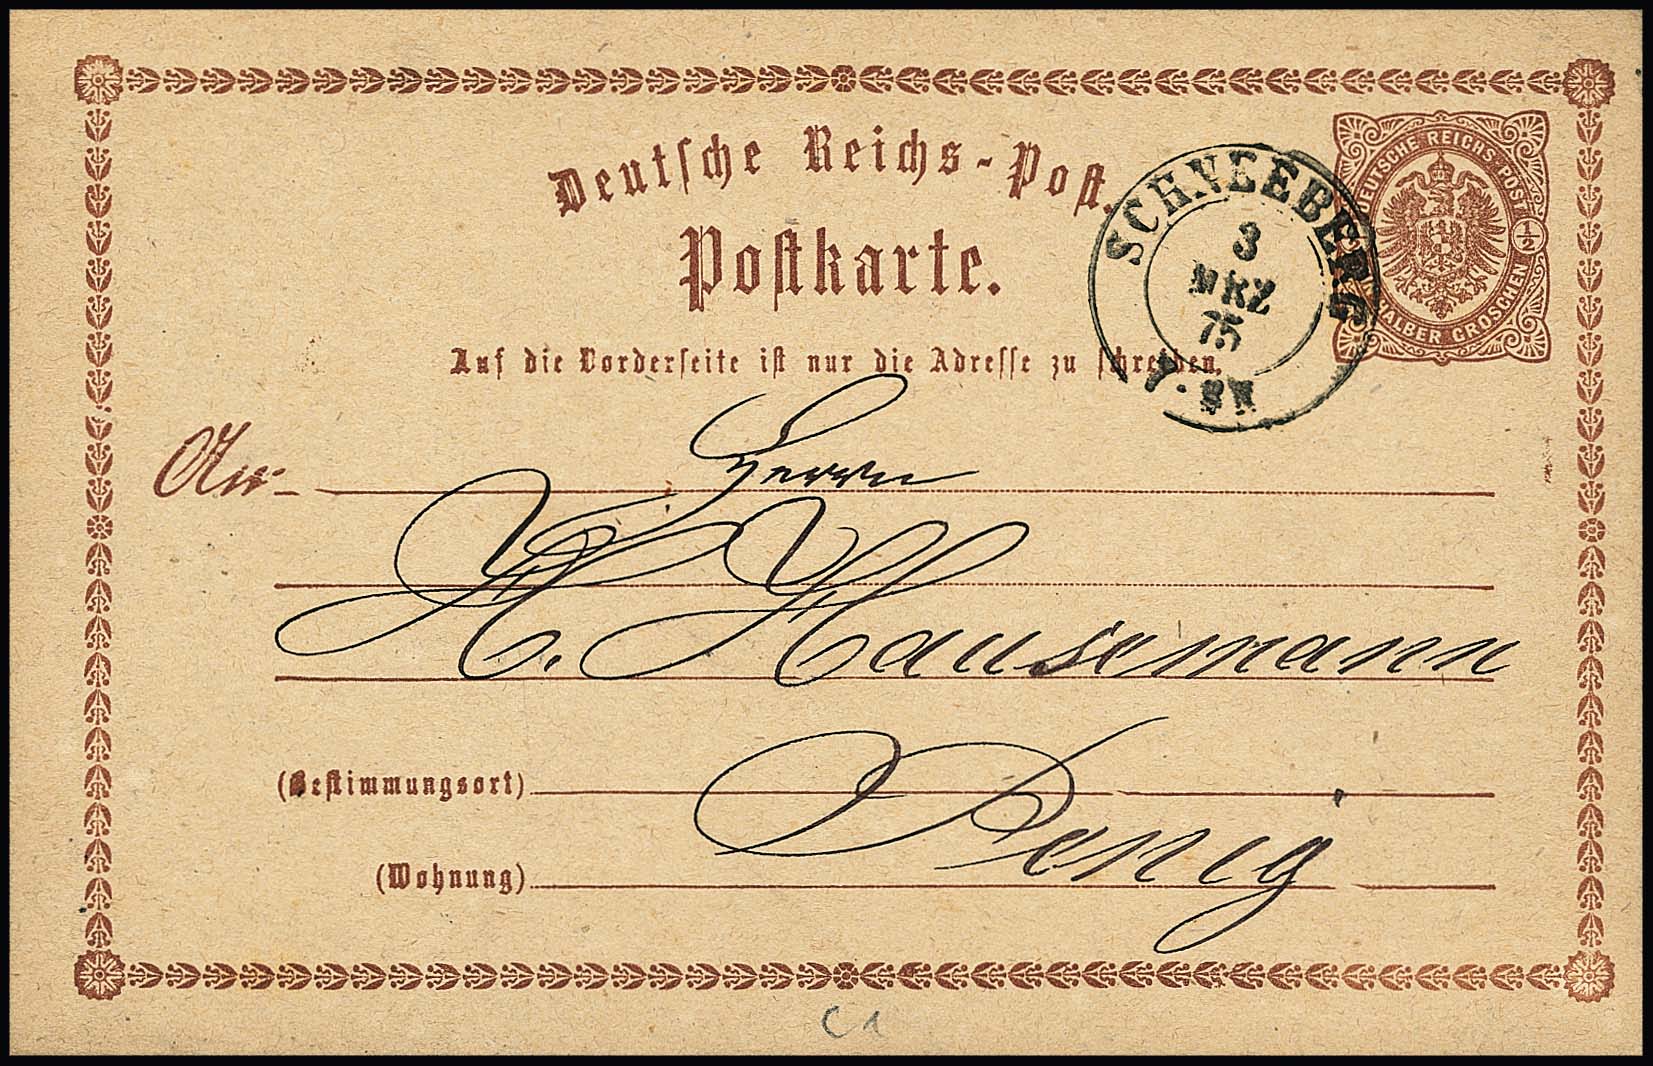 Deutsche Reichs-Post.
Postkarte.
DEUTSCHE REICHS-POST
1/2
HALBER GROSCHEN
SCHNEEBERG
3
MRZ
75
Auf die Vorderseite ist nur die Adresse zu schreiben.
An Herrn
H. Hausemann
(Bestimmungsort) Penig
(Wohnung)
C1